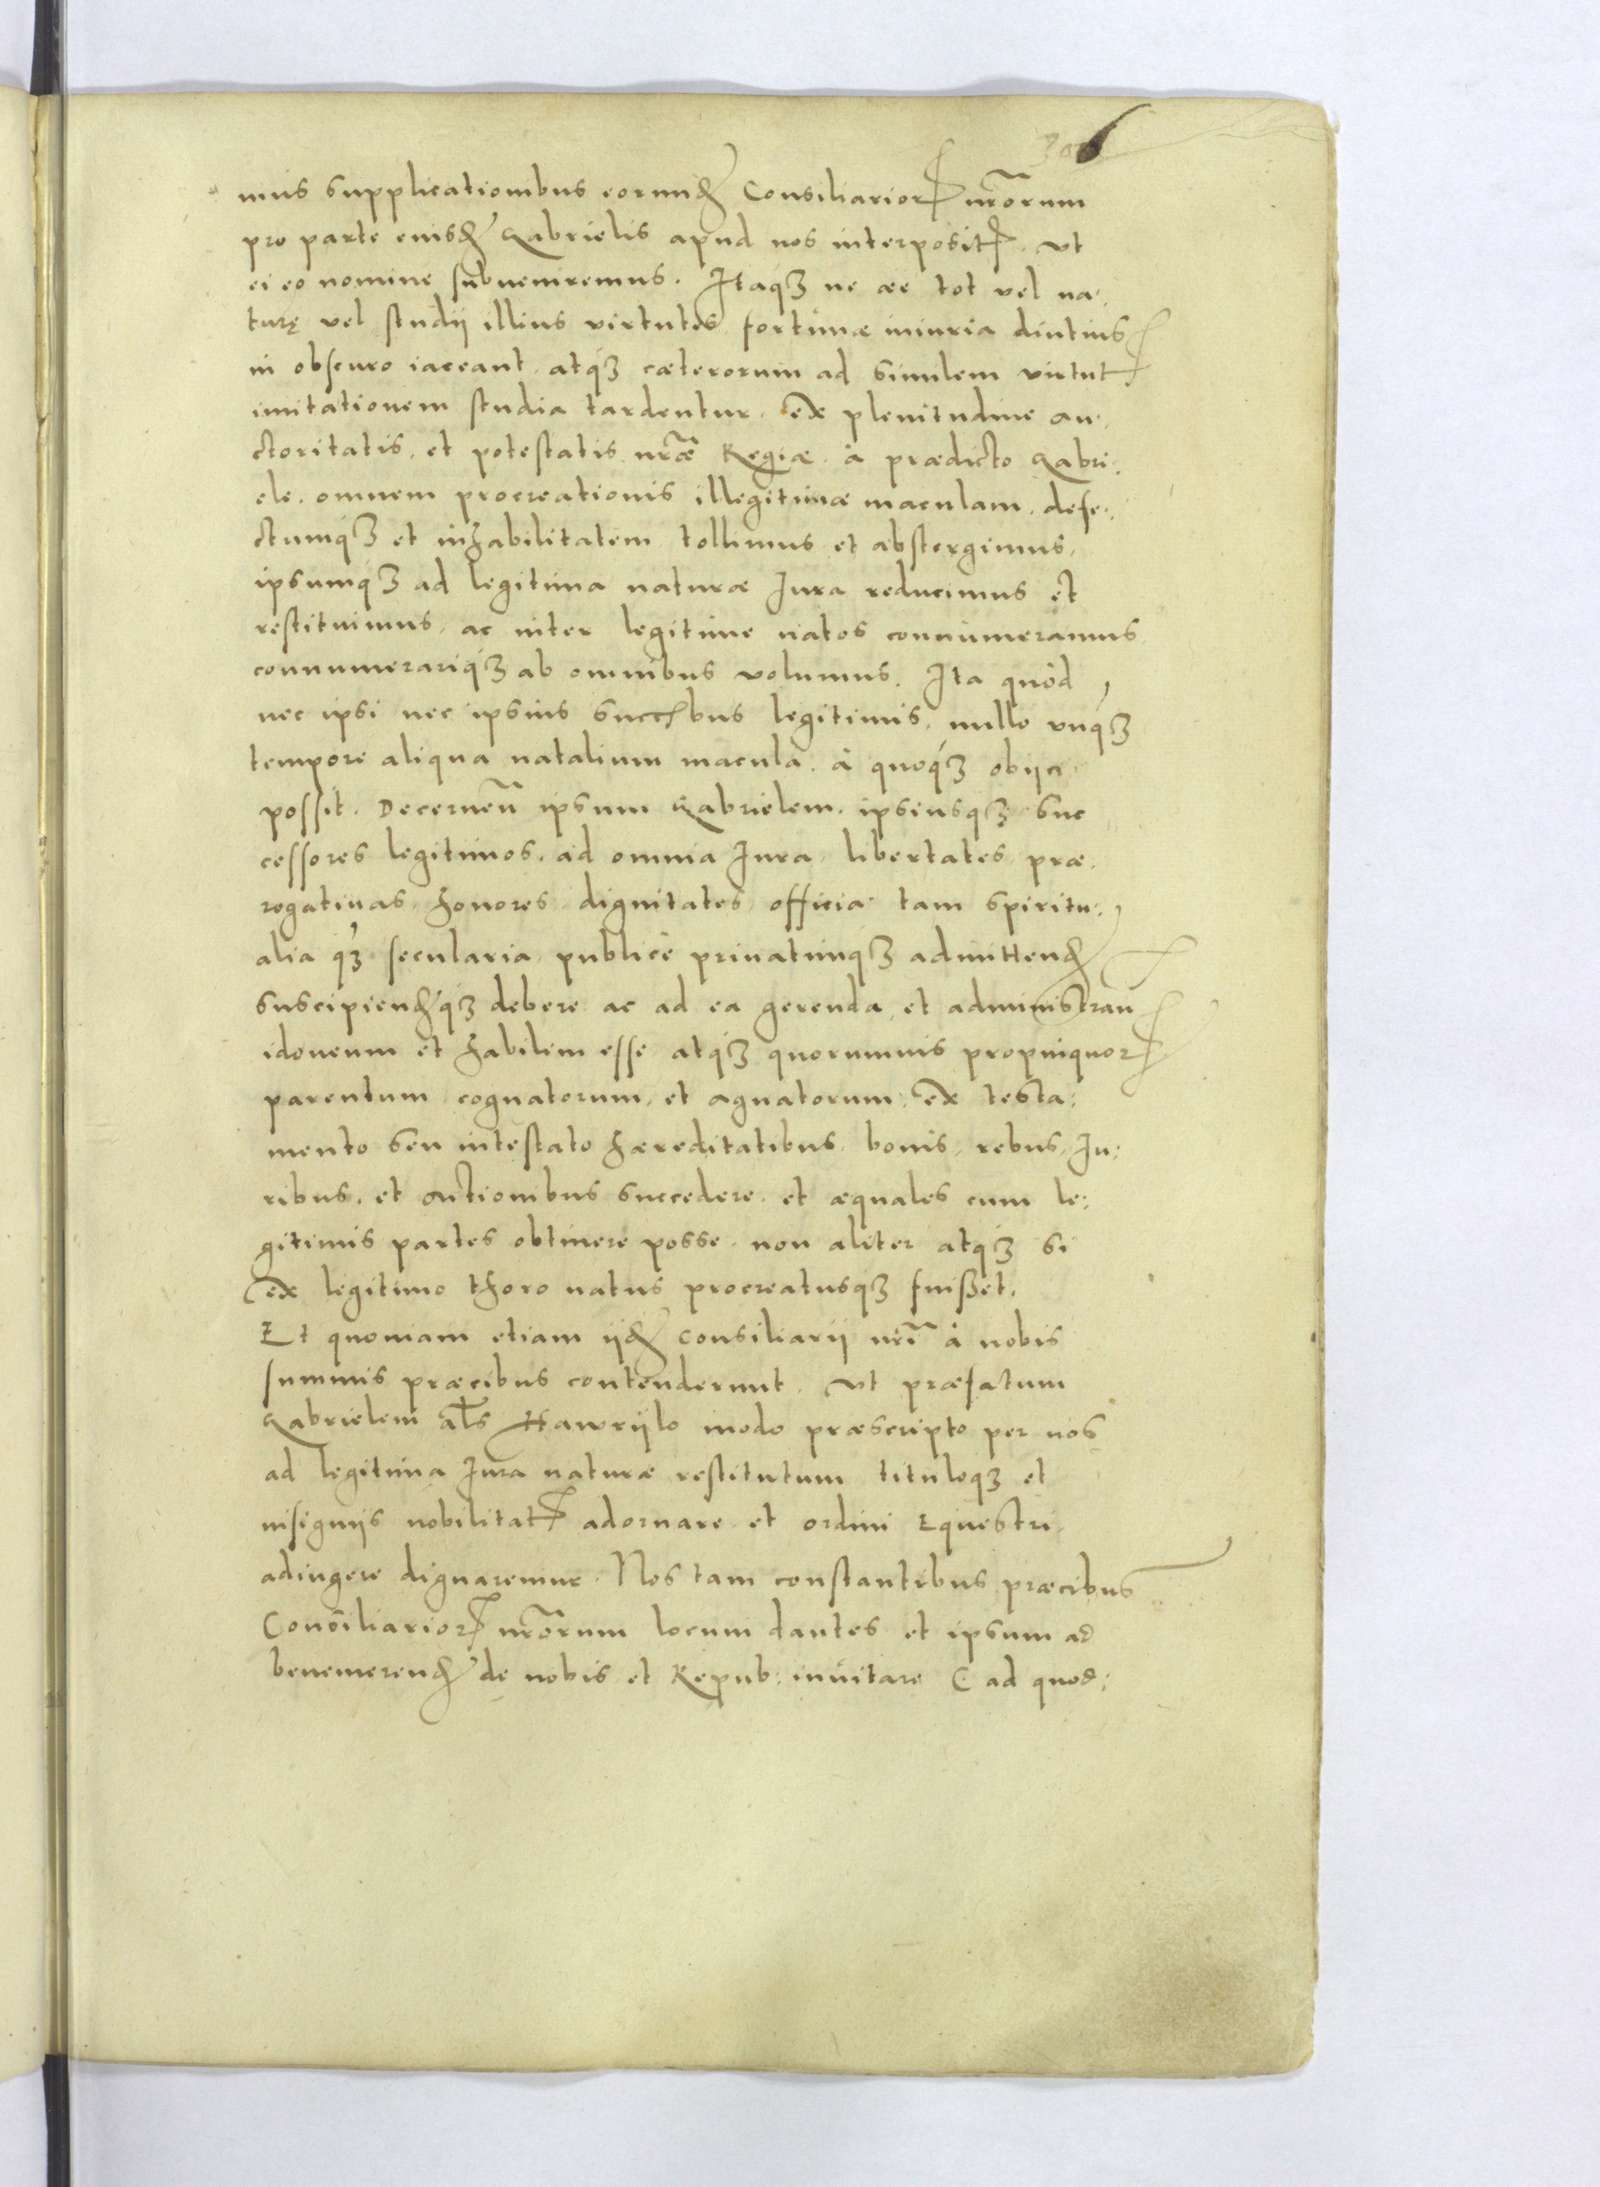 mis supplicationibus eorundꝫ Consiliarior nr̃orum
pro parte eiusdꝫ Gabrielis apud nos interposit. ut
ei eo nomine subueniremus. Itaqꝫ ne ae tot vel na.
turę vel studij illius virtutes fortunæ iniuria diutius
in obscuro iaceant, atqꝫ cæterorum ad similem virtut
imitationem studia tardentur. ex plenitudine au.
ctoritatis, et potestatis nr̃æ Regiæ à prædicto Gabri:
ele. omnem procreationis illegitimæ maculam, defe.
ctumqꝫ et inhabilitatem tollimus et abstergimus,
ipsumqꝫ ad legitima naturæ Iura reducimus et
restituimus, ac inter legitime natos connumeramus
connumerariqꝫ ab omnibus volumus. Ita quòd
nec ipsi nec ipsius succbus legitimis, nullo unqꝫ
tempore aliqua natalium macula à quoqꝫ obijci
possit. Decernen̄ ipsum Gabrielem, ipsiusqꝫ suc
cessores legitimos, ad omnia Iura, libertates, præ.
rogatiuas, honores, dignitates, officia tam spiritu:
alia qꝫ secularia, publicè priuatimqꝫ admittendꝫ
suscipiendꝫqꝫ debere ac ad ea gerenda, et administran
idoneum et habilem esse atqꝫ quorumuis propinquor
parentum, cognatorum, et agnatorum, ex testa:
mento seu intestato hæreditatibus, bonis, rebus, Iu:
ribus, et actionibus succedere, et æquales cum le:
gitimis partes obtinere posse, non aliter atqꝫ si
ex legitimo thoro natus procreatusqꝫ fuißet.
Et quoniam etiam ijdꝫ consiliarij nr̃i à nobis
summis præcibus contenderunt, ut præfatum
Gabrielem al̃s Hawryilo modo præscripto per nos
ad legitima Iura naturæ restitutum tituloqꝫ et
insignijs nobilitat adornare et ordini Equestri
adiungere dignaremur. Nos tam constantibus præcibus
Consiliarior nr̃orum locum dantes et ipsum ad
benemerendꝫ de nobis et Repub: inuitare ( ad quod: